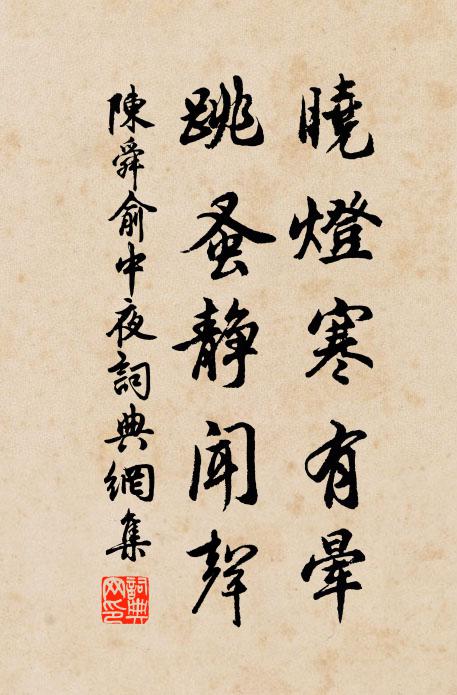 曉燈寒有暈
跳蚤静聞聲
陳舜俞中夜詞典網集
詞典网印